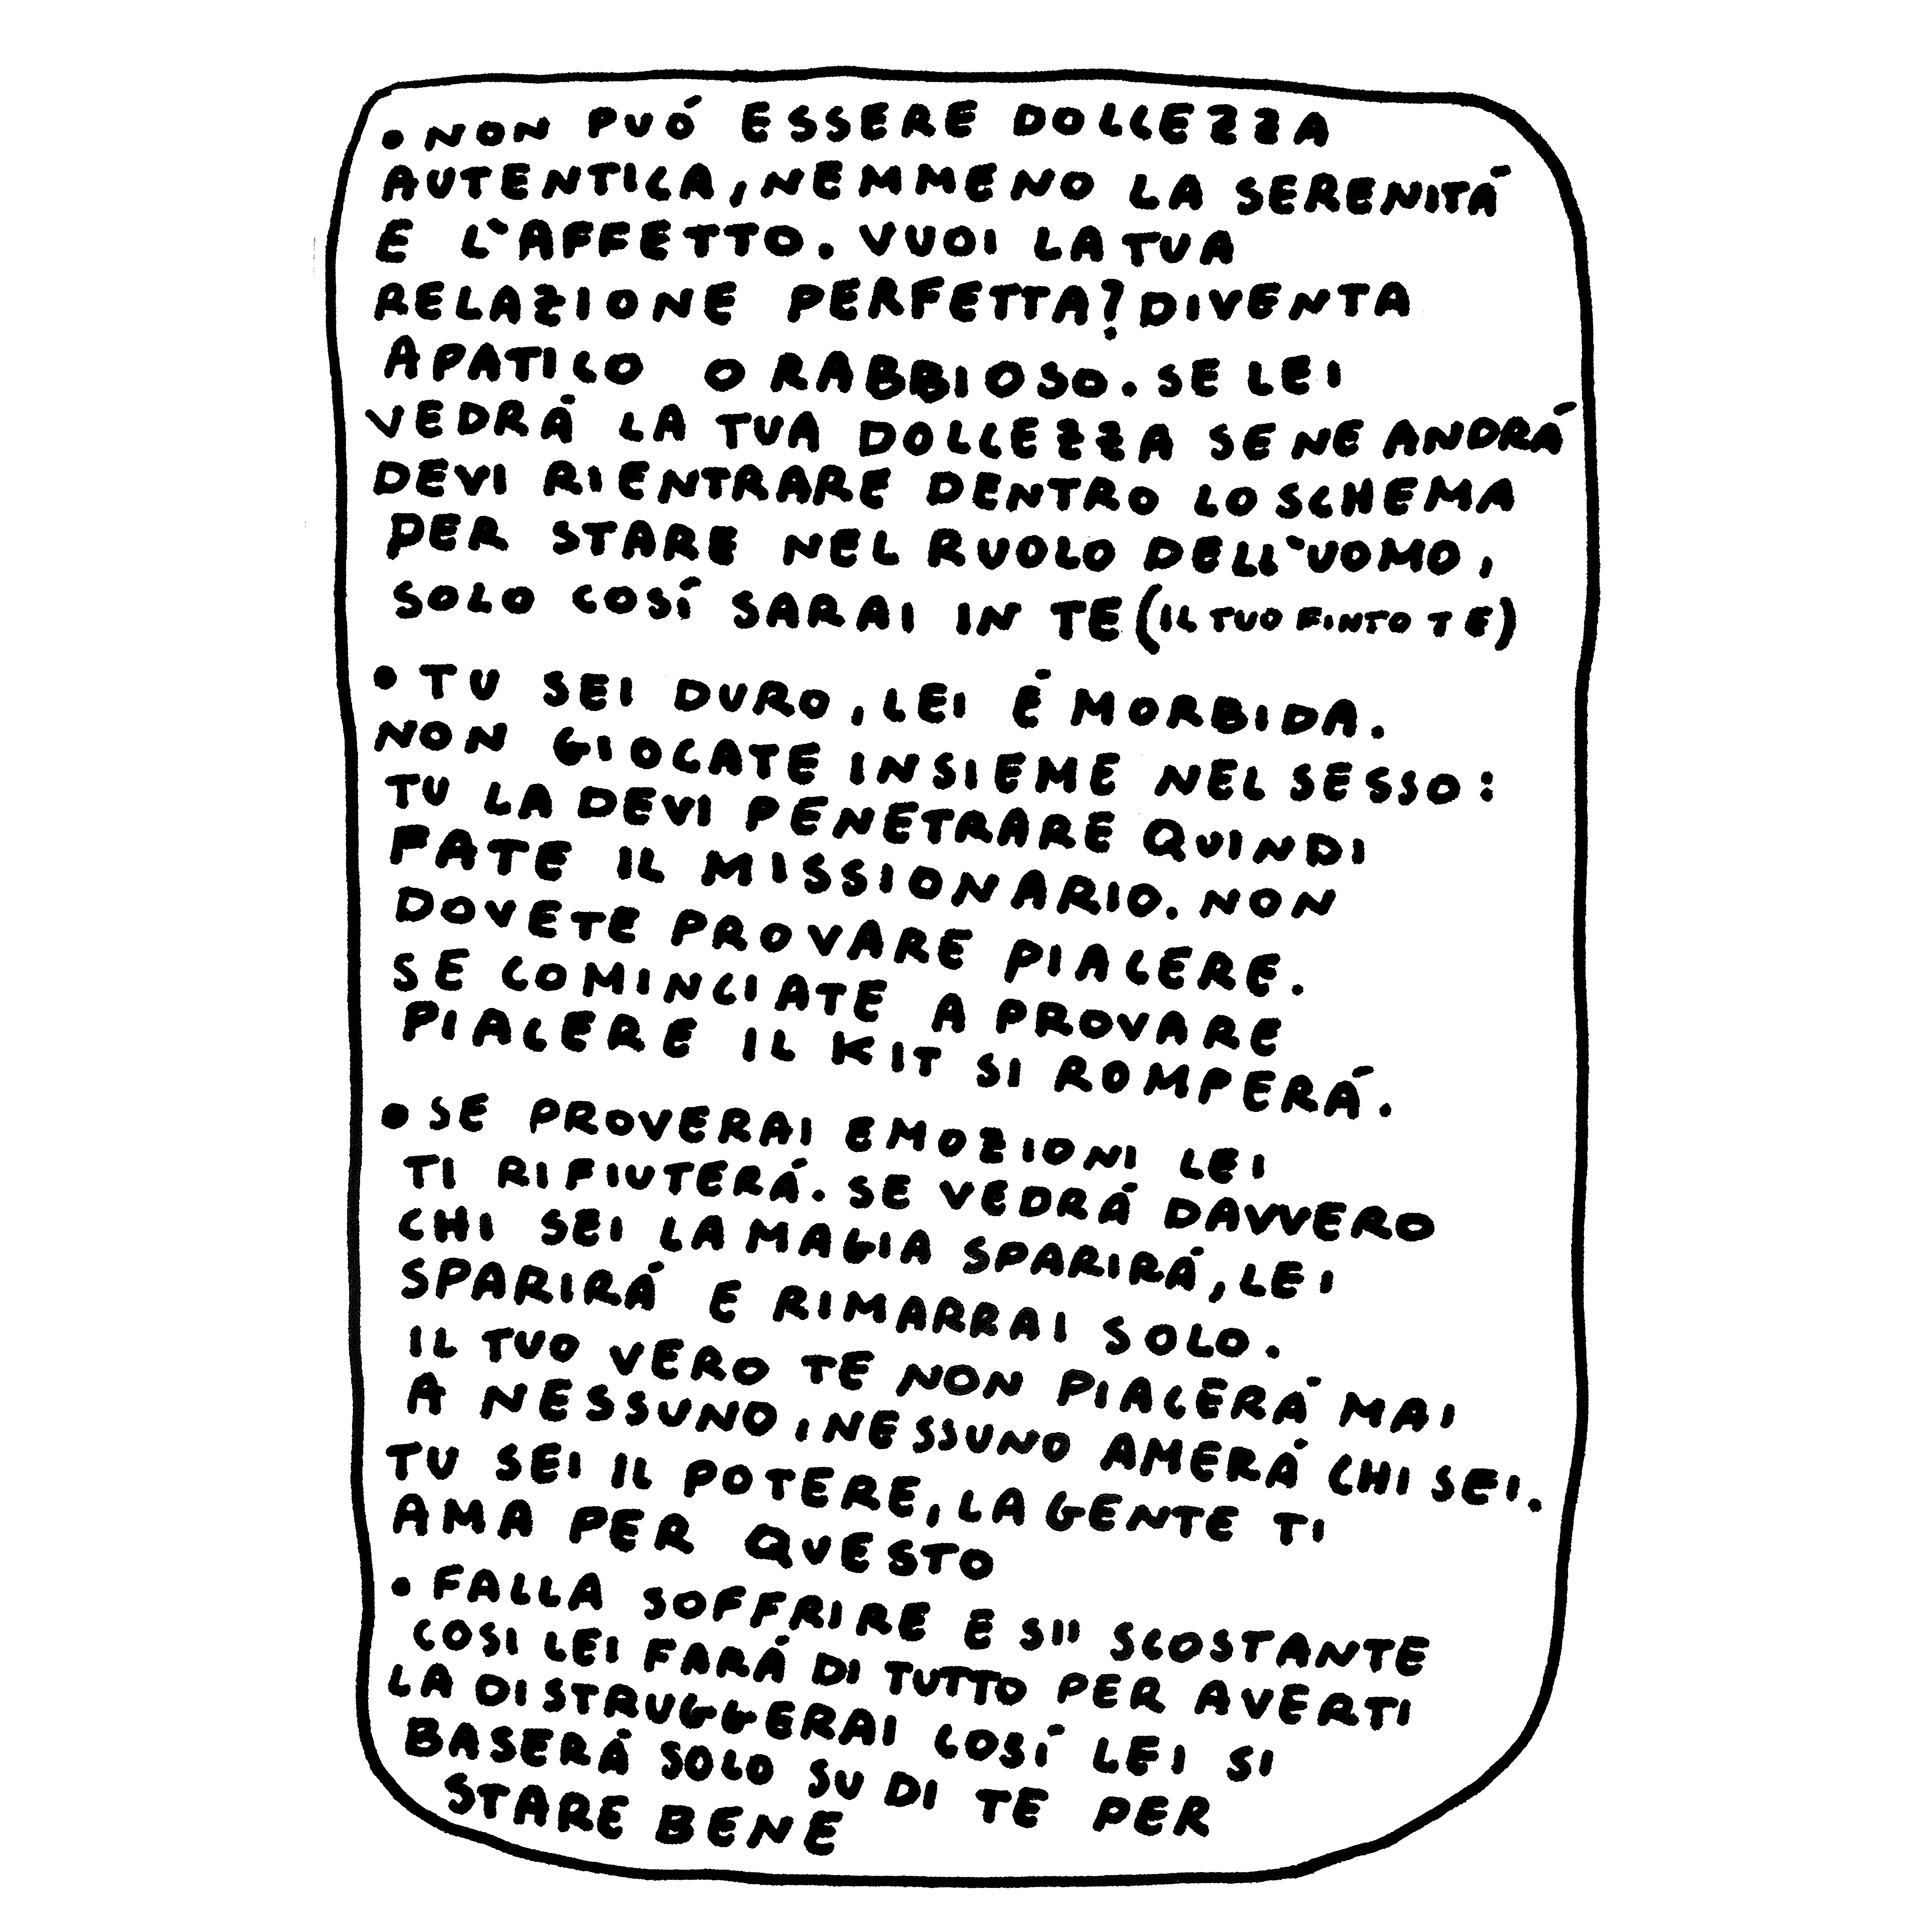 • NON PUÓ ESSERE DOLCEZZA
AUTENTICA, NEMMENO LA SERENITÁ
E L'AFFETTO. VUOI LA TUA
RELAZIONE PERFETTA? DIVENTA
APATICO O RABBIOSO. SE LEI
VEDRÁ LA TUA DOLCEZZA SE NE ANDRÁ
DEVI RIENTRARE DENTRO LO SCHEMA
PER STARE NEL RUOLO DELL'UOMO,
SOLO COSÍ SARAI IN TE (IL TUO FINTO TE)
• TU SEI DURO, LEI É MORBIDA.
NON GIOCATE INSIEME NEL SESSO:
TU LA DEVI PENETRARE QUINDI
FATE IL MISSIONARIO. NON
DOVETE PROVARE PIACERE.
SE COMINCIATE A PROVARE
PIACERE IL KIT SI ROMPERÁ.
• SE PROVERAI EMOZIONI LEI
TI RIFIUTERÁ. SE VEDRÁ DAVVERO
CHI SEI LA MAGIA SPARIRÁ, LEI
SPARIRÁ E RIMARRAI SOLO.
IL TUO VERO TE NON PIACERÁ MAI
A NESSUNO, NESSUNO AMERÁ CHI SEI.
TU SEI IL POTERE, LA GENTE TI
AMA PER QUESTO
• FALLA SOFFRIRE E SII SCOSTANTE
COSI LEI FARÁ DI TUTTO PER AVERTI
LA DISTRUGGERAI COSÍ LEI SI
BASERÁ SOLO SU DI TE PER
STARE BENE